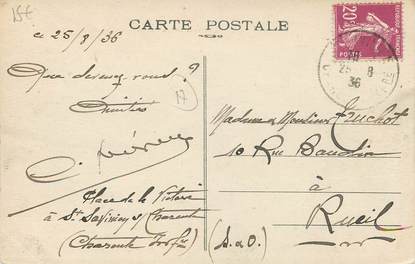 15€
CARTE POSTALE
ce 25/8/36
Que devenez-vous ?
Amitiés
17
Place de la Victoire
à St Savinien s/ Charente
(Charente Infre)
Madame & Monsieur Truchot
10 Rue Baudin
à
Rueil
(S. & O.)
20c
POSTES
25 8
36